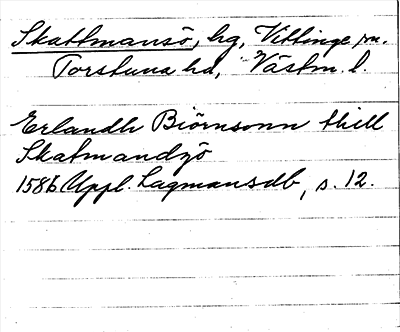 Skattmansö, hg, Vittinge sn.
Torstuna hd, Västm. l.
Erlandh Biörnsonn thill
Skatmandzö
1586 Uppl. Lagmansdb, s. 12.